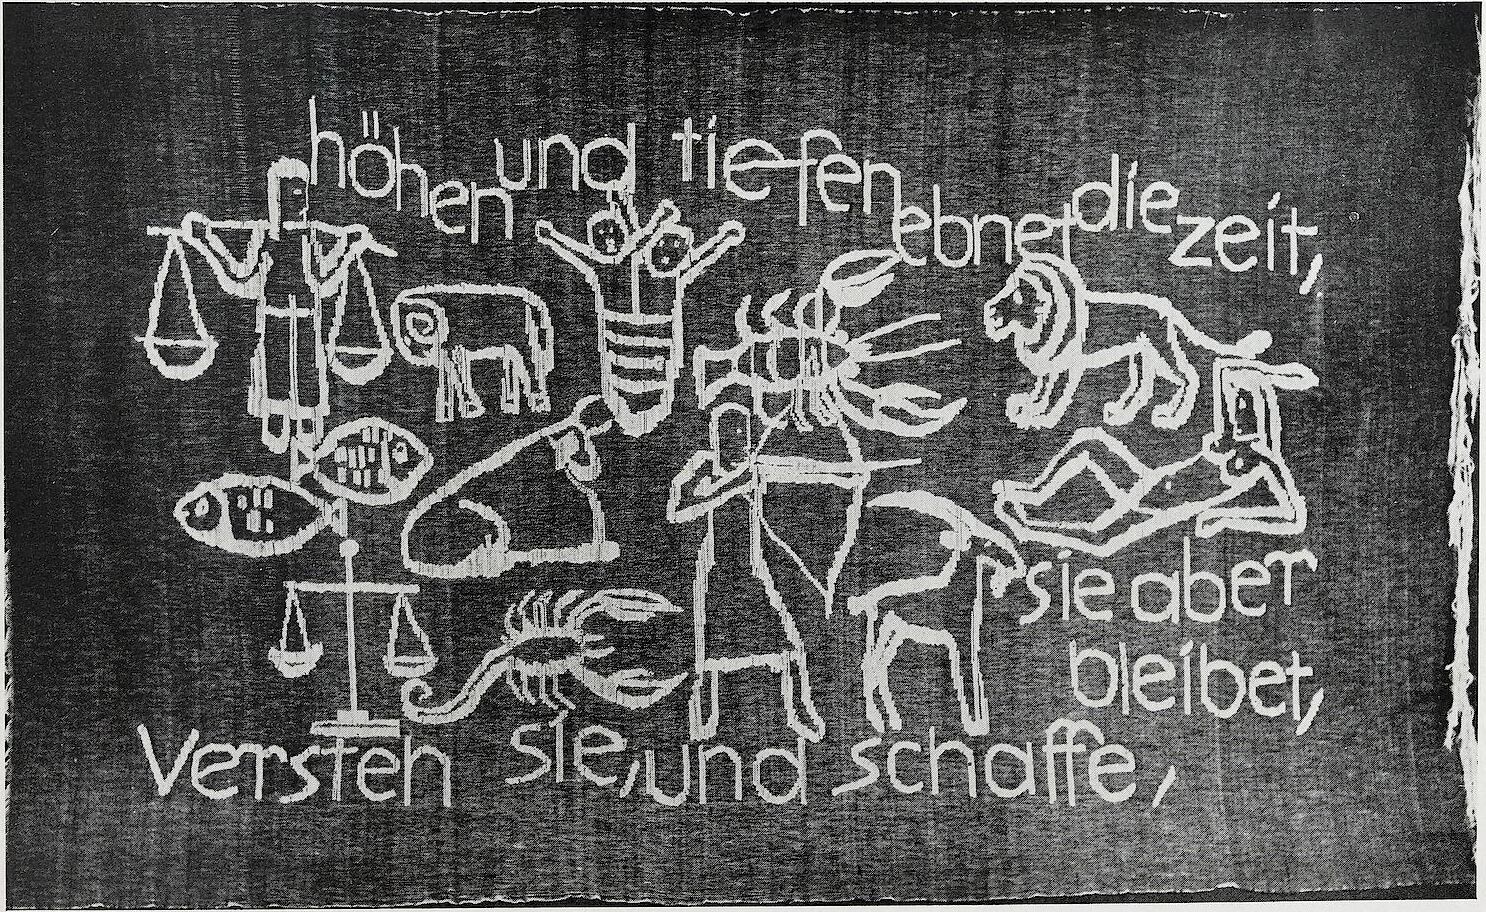 höhen und tiefen ebnet die zeit,
sie aber
bleibet,
Versteh sie, und schaffe,